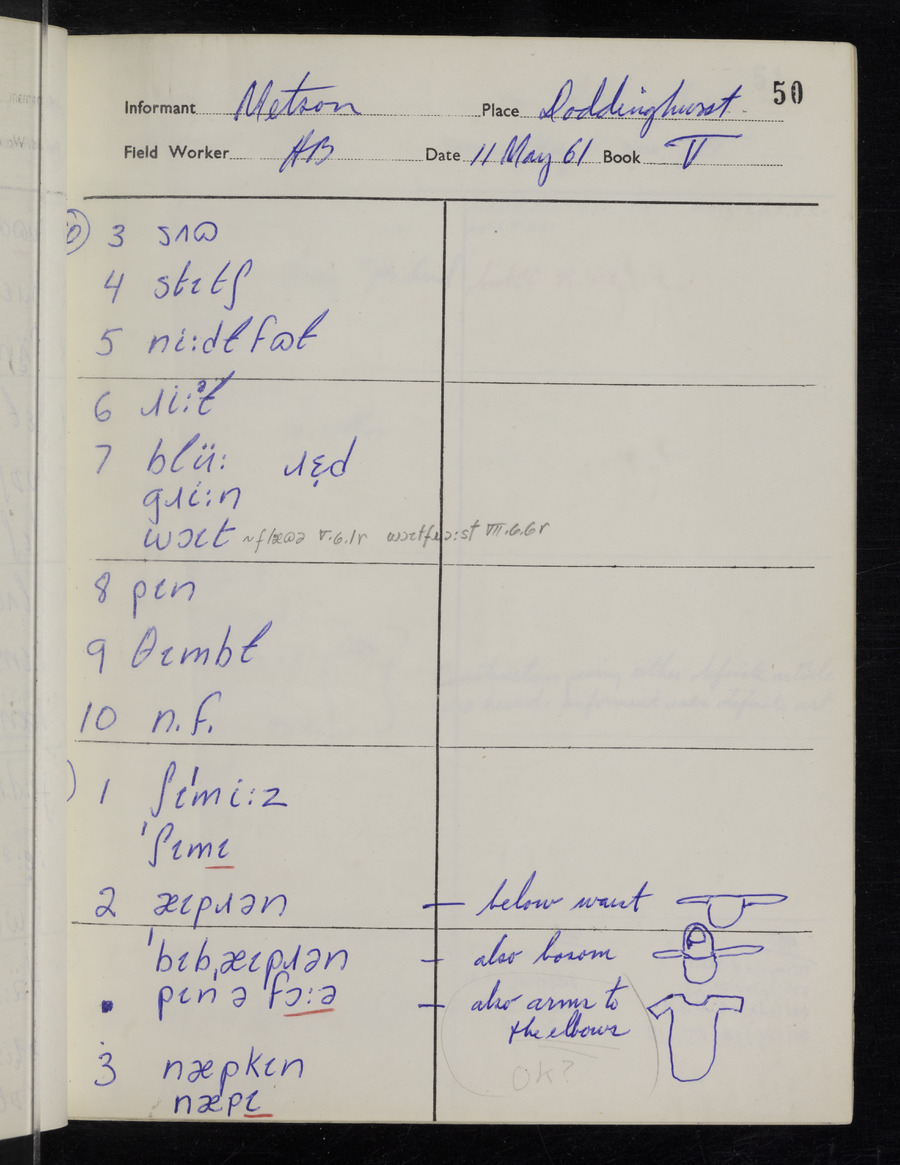 50
Informant Metson Place Doddinghurst
Field Worker AB Date 11 May 61 Book V
3 sʌɷ
4 stɪtʃ
5 ni:dɫfɷɫ
6 ɹi:ᵊɫ
7 blü: ɹɛ̣d
gɹi:n
wɔɪt
8 pɪn
9 θɪmbɫ
10 n.f.
1 ʃɪˈmi:z
ˈʃɪmɪ
2 æɪpɹən — below waist
ˈbɪbˌæɪpɹən — also bosom
pɪnəfɔ:ə — also arms to
the elbows
OK?
3 næpkɪn
næpɪ